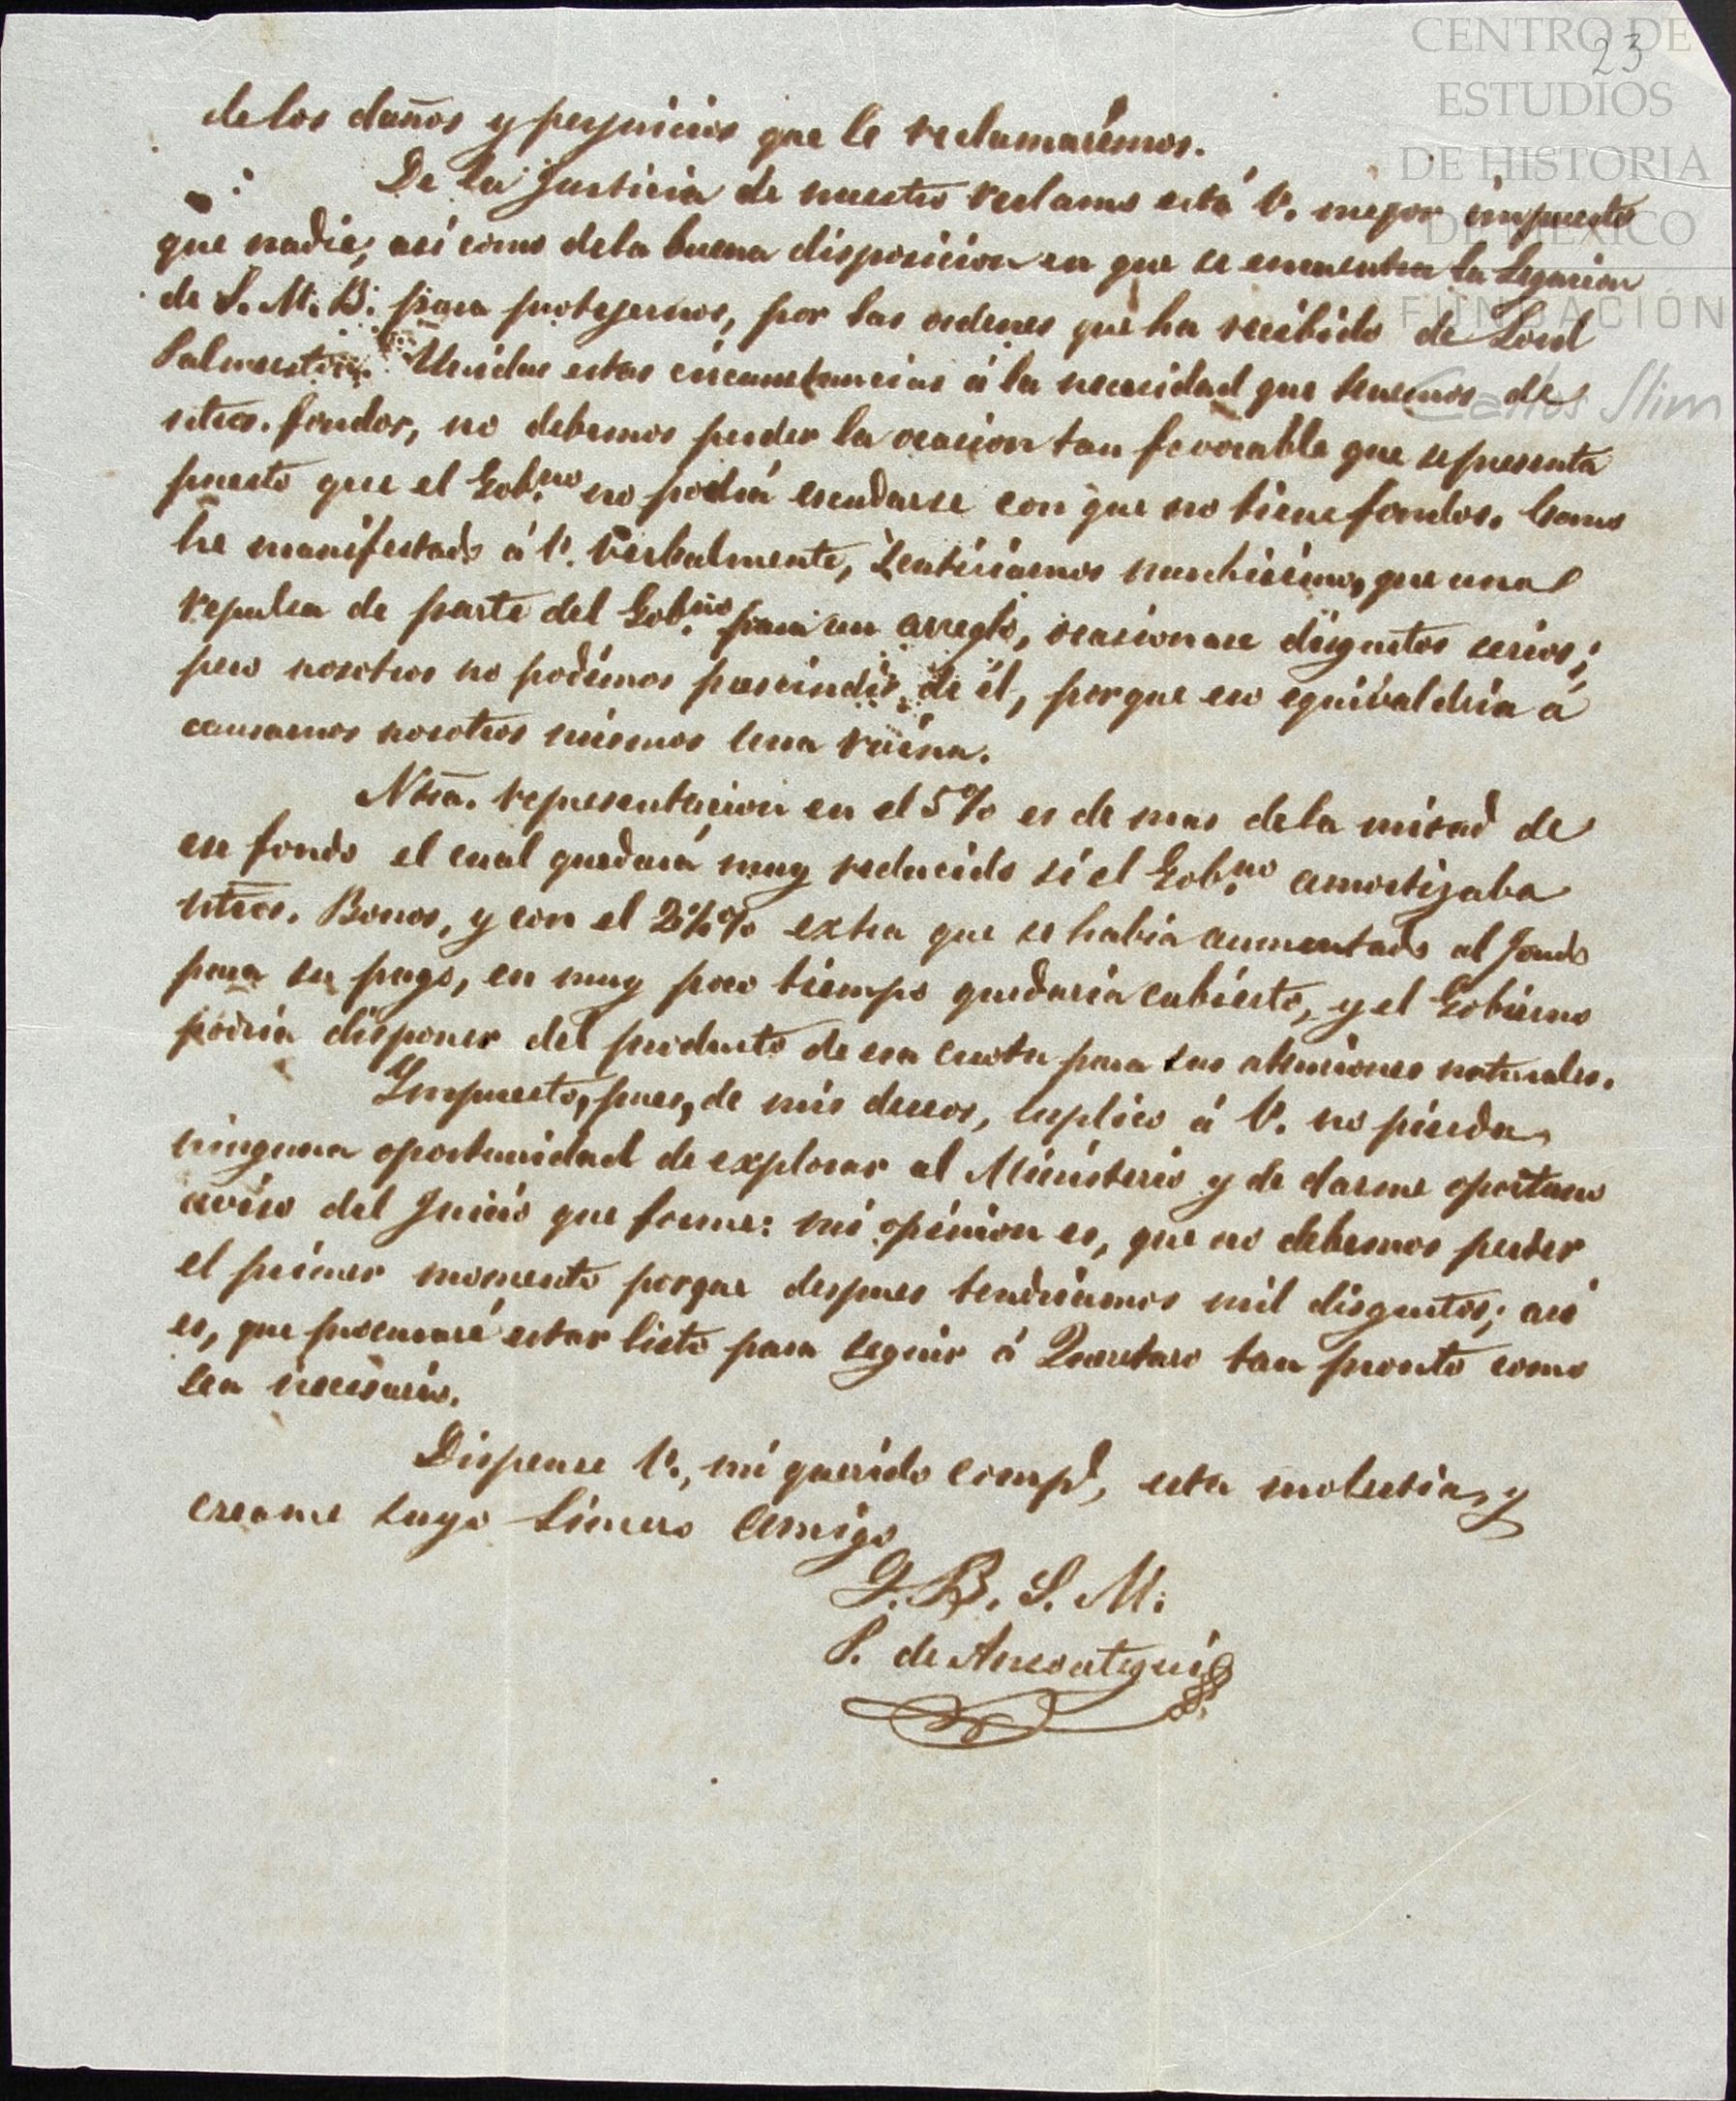 CENTRO DE
ESTUDIOS
DE HISTORIA
DE MÉXICO
FUNDACIÓN
Carlos Slim
23
de los daños y perjuicios que le reclamarémos.
De la Justicia de nuestro reclamo está V. mejor impuesto
que nadie, así como de la buena disposicion en que se encuentra la Legacion
de S. M. B. para protejernos, por las ordenes que ha recibido de Lord
Palmerston. Unidas estas circunstancias á la necesidad que tenemos de
ntros. fondos, no debemos perder la ocasion tan favorable que se presenta
puesto que el Gobno. no podrá escudarse con que no tiene fondos. Como
he manifestado á V. verbalmente, sentiriamos muchisimo, que una
repulsa de parte del Gobno. para un arreglo, ocasionase disgustos serios;
pero nosotros no podémos prescindir de él, porque eso equivaldria á
causarnos nosotros mismos una ruina.
Ntra. representacion en el 5% es de mas de la mitad de
ese fondo el cual quedará muy reducido si el Gobno. amortizaba
ntros. Bonos, y con el 2½% extra que se habia aumentado al fondo
para su pago, en muy poco tiempo quedaria cubierto, y el Gobierno
podria disponer del producto de esa cuota para sus atenciones naturales.
Impuesto, pues, de mis deseos, suplico á V. no pierda
ninguna oportunidad de explorar al Ministerio y de darme oportuno
aviso del Juicio que forme: mi opinion es, que no debemos perder
el primer momento porque despues tendriamos mil disgustos; asi
es, que procuraré estar listo para seguir á Queretaro tan pronto como
sea necesario.
Dispense V., mi querido comp.e, esta molestia, y
creame suyo sincero amigo
Q. B. S. M.
P. de Ansoategui